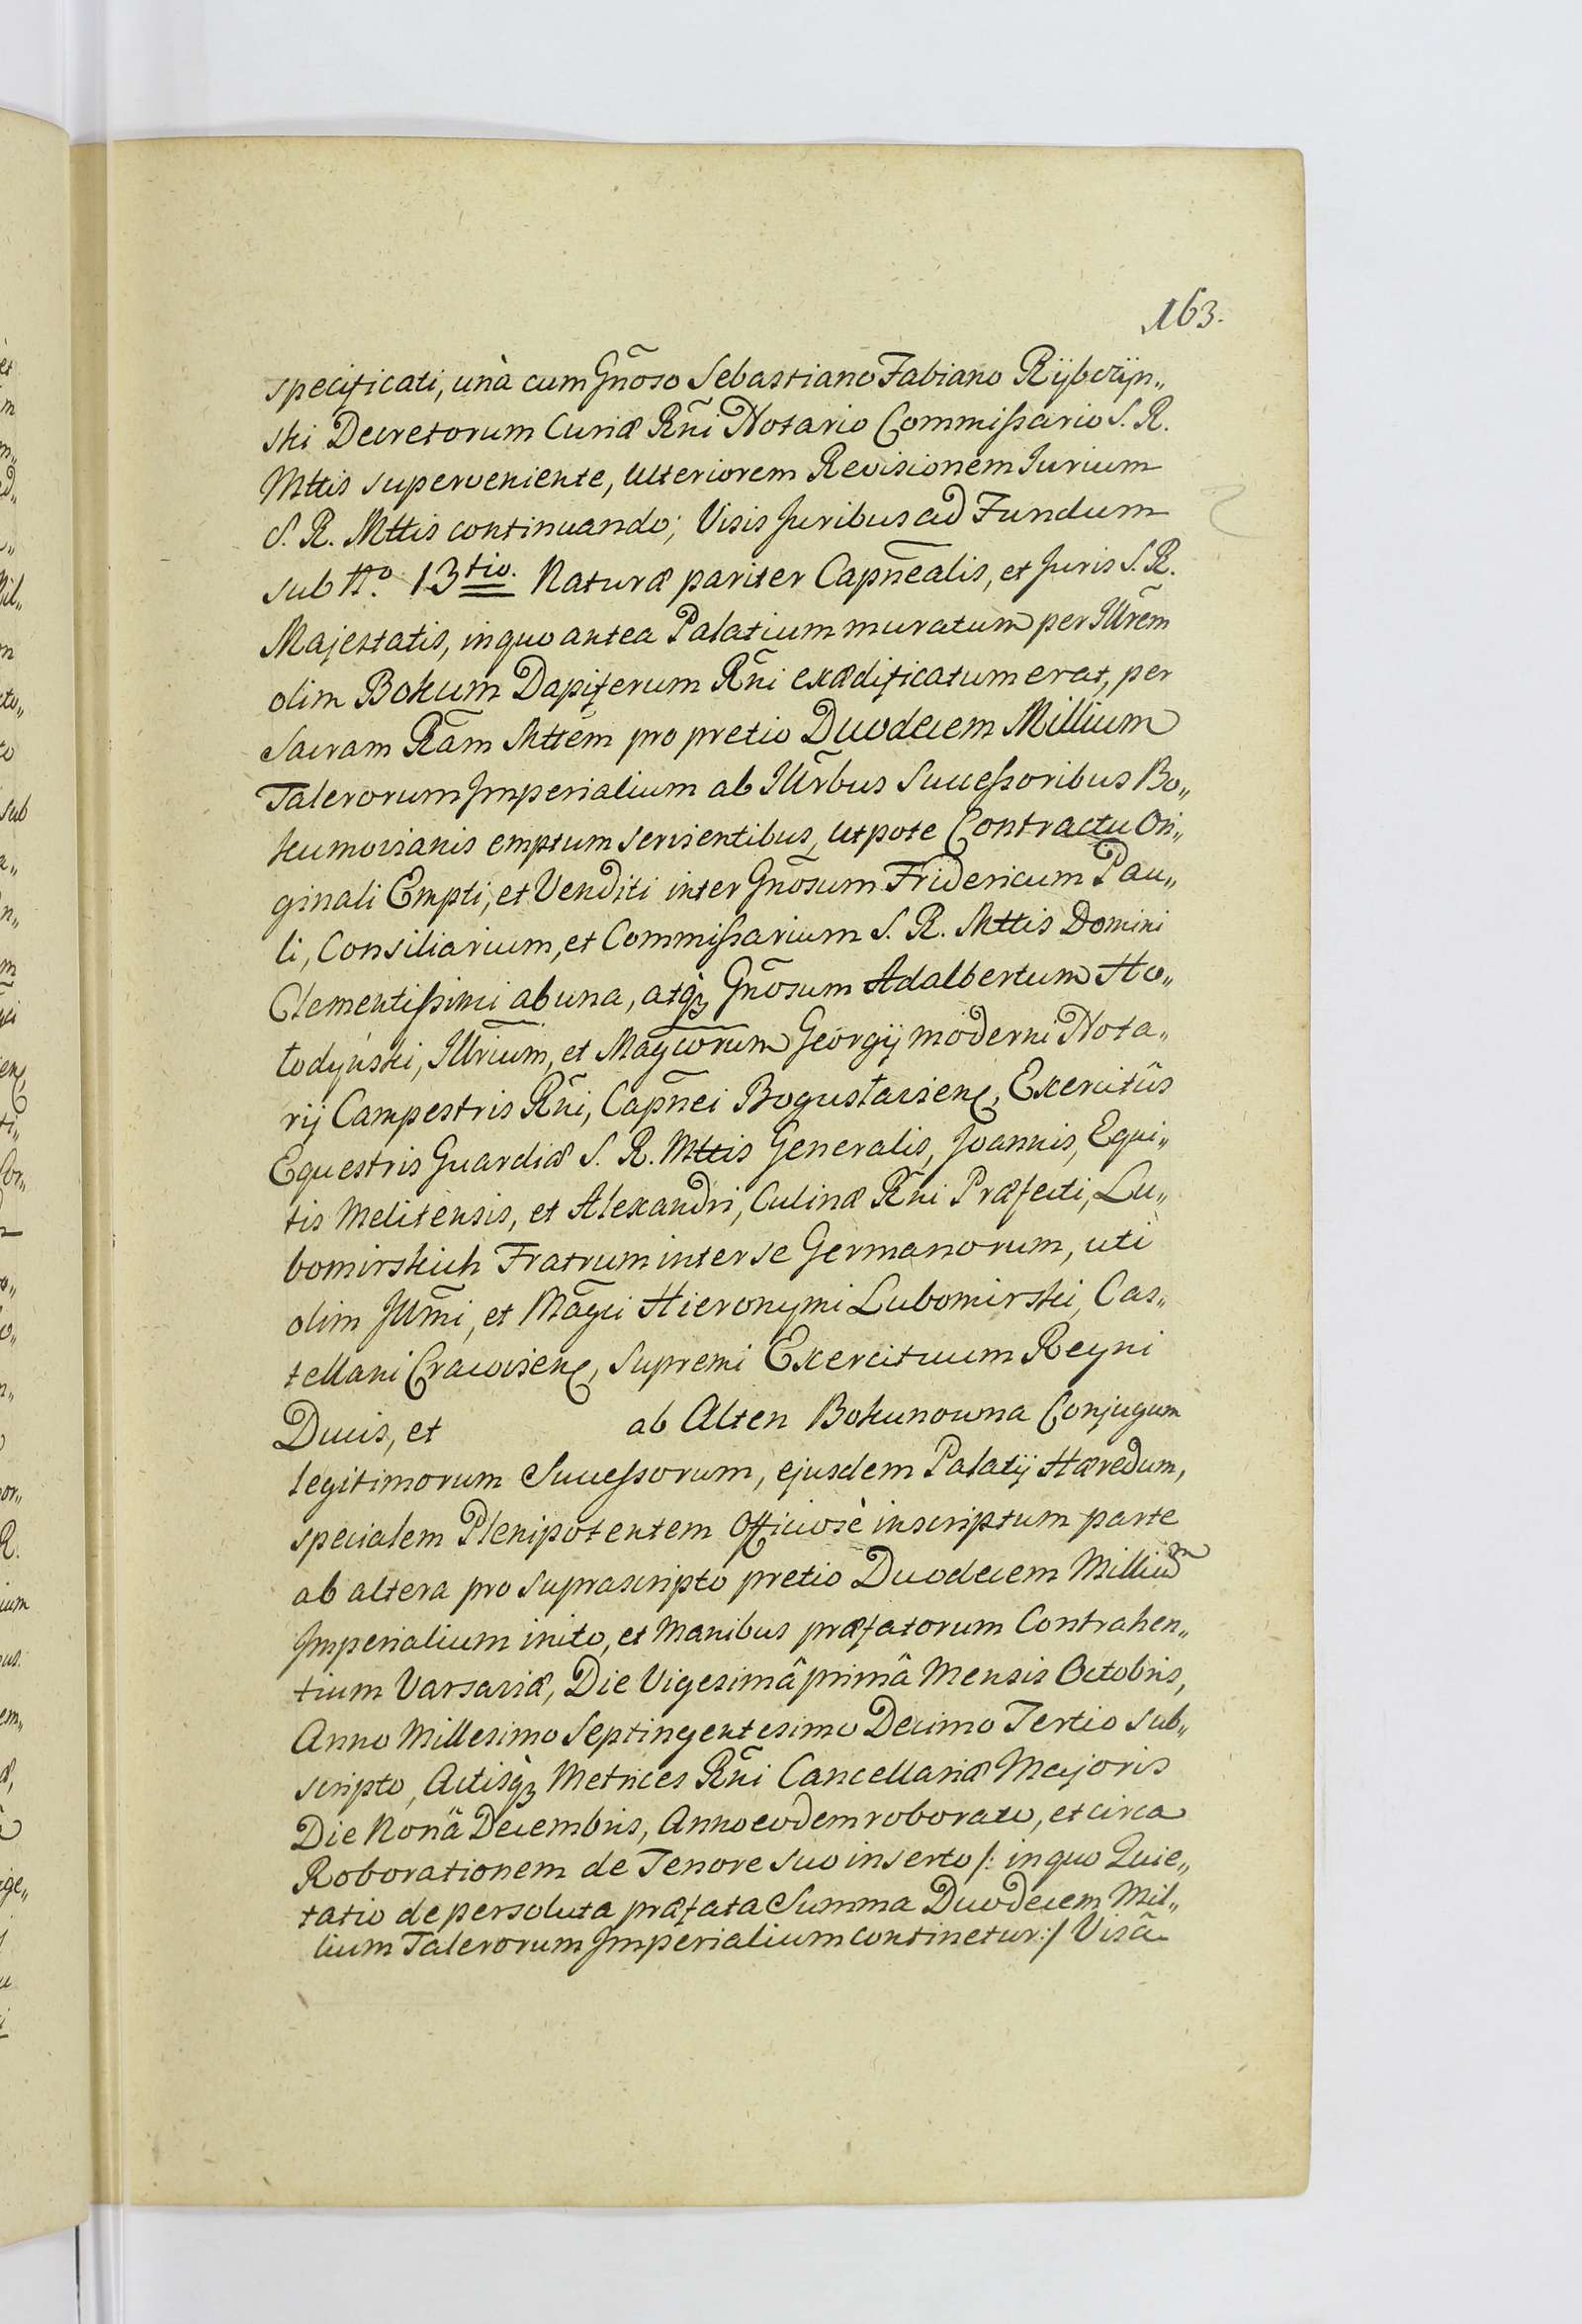 163.
specificati, unà cum Gñoso Sebastiano Fabiano Rÿbczÿn„
ski Decretorum Curiæ Rñi Notario Commissario S. R.
Mttis superveniente, Ulteriorem Revisionem Iurium
S. R. Mttis continuando; Visis Juribus ad Fundum
sub Nº 13tio. Naturæ pariter Capñealis, et Juris S. R.
Majestatis, in quo antea Palatium muratum per Illrẽm
olim Bokum Dapiferum Rñi exædificatum erat, per
Sacram Rãm Mttẽm pro pretio Duodecem Millium
Talerorum Imperialium ab Illr̃bus Successoribus Bo„
kumovianis emptum servientibus, utpote Contractu Ori„
ginali Empti, et Venditi inter Gñosum Fridericum Pau„
li, Consiliarium, et Commissarium S. R. Mttis Domini
Clementissimi ab una, atq̀ꝫ Gñosum Adalbertum Ho„
todyński, Illrium, et Magcorum Georgij moderni Nota„
rij Campestris Rñi, Capñei Bogustaviens, Exercitûs
Equestris Guardiæ S. R. Mttis Generalis, Joannis, Equi„
tis Melitensis, et Alexandri, Culinæ Rñi Præfecti, Lu„
bomirskich Fratrum inter se Germanorum, uti
olim Illm̃i, et Mãgci Hieronymi Lubomirski, Cas„
tellani Cracoviens, Supremi Exercituum Regni
Ducis, et ab Alten Bokunowna Conjugum
legitimorum Successorum, ejusdem Palatÿ Hæredum,
specialem Plenipotentem Officiosè inscriptum parte
ab altera pro suprascripto pretio Duodecem Millium
Imperialium inito, et Manibus præfatorum Contrahen„
tium Varsaviæ, Die Vigesimâ primâ Mensis Octobris,
Anno Millesimo Septingentesimo Decimo Tertio sub„
scripto, Actisq̀ꝫ Metrices Rñi Cancellariæ Majoris
Die Nonâ Decembris, Anno eodem roborato, et circa
Roborationem de Tenore suo inserto /: in quo Quie„
tatio de persoluta præfata Summa Duodecem Mil„
lium Talerorum Imperialium continetur :/ Visâ